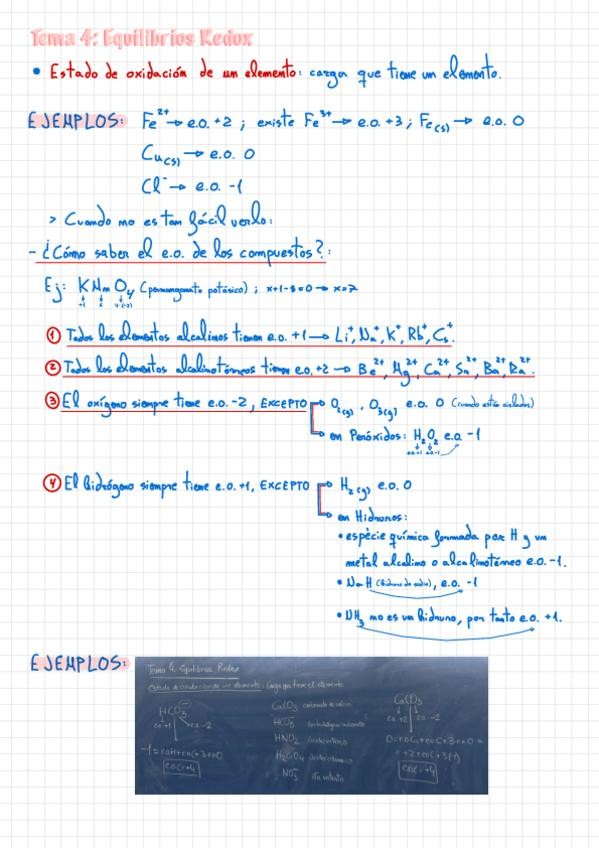 Tema 4: Equilibrios Redox
• Estado de oxidación de un elemento: carga que tiene un elemento.
EJEMPLOS: Fe²⁺ → e.o. +2 ; existe Fe³⁺ → e.o. +3 ; Fe(s) → e.o. 0
Cu(s) → e.o. 0
Cl⁻ → e.o. -1
> Cuando no es tan fácil verlo:
- ¿Cómo saber el e.o. de los compuestos?:
Ej: KMnO₄ (permanganato potásico) ; x+1-8=0 → x=7
+1 x 4·(-2)
① Todos los elementos alcalinos tienen e.o. +1 → Li⁺, Na⁺, K⁺, Rb⁺, Cs⁺.
② Todos los elementos alcalinotérreos tienen e.o. +2 → Be²⁺, Mg²⁺, Ca²⁺, Sr²⁺, Ba²⁺, Ra²⁺.
③ El oxígeno siempre tiene e.o. -2, EXCEPTO → O₂(g), O₃(g) e.o. 0 (cuando están aislados)
→ en Peróxidos: H₂O₂ e.o. -1
e.o.+1 e.o.-1
④ El hidrógeno siempre tiene e.o. +1, EXCEPTO → H₂(g) e.o. 0
→ en Hidruros:
• espécie química formada por H y un
metal alcalino o alcalinotérreo e.o. -1.
• NaH (hidruro de sodio), e.o. -1
• NH₃ no es un hidruro, por tanto e.o. +1.
EJEMPLOS:
Tema 4. Equilibrios Redox
Estado de oxidación de un elemento: Carga que tiene el elemento
HCO₃⁻
eo+1 eo-2
CaCO₃ carbonato de calcio
HCO₃⁻
HNO₂
H₂CrO₄
NO₃⁻
CaCO₃
eo+2 eo-2
eoC=+4
eoC=+4